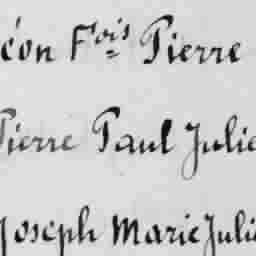 éon Fçois Pierre
Pierre Paul Julie
Joseph Marie Juli